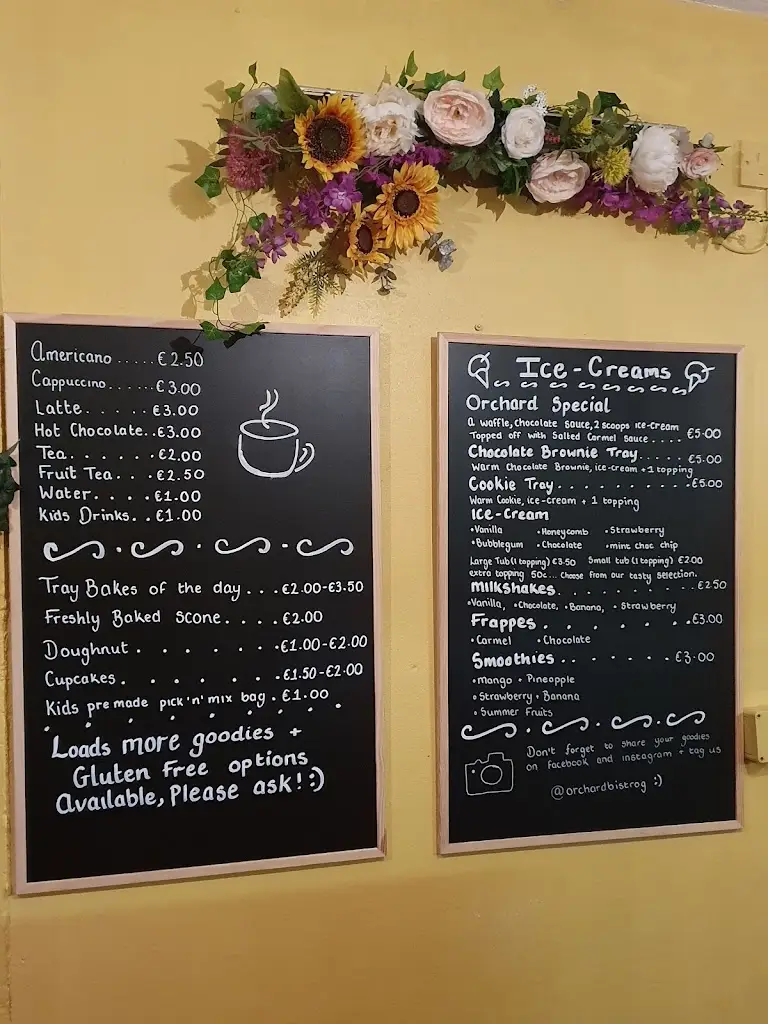 Americano.....€2.50
Cappuccino......€3.00
Latte.....€3.00
Hot Chocolate..€3.00
Tea.....€2.00
Fruit Tea...€2.50
Water.....€1.00
Kids Drinks..€1.00
Tray Bakes of the day...€2.00-€3.50
Freshly Baked Scone....€2.00
Doughnut......€1.00-€2.00
Cupcakes......€1.50-€2.00
Kids pre made pick'n'mix bag.€1.00
Loads more goodies +
Gluten Free options
Available, Please ask! :)
Ice-Creams
Orchard Special
A waffle, chocolate sauce, 2 scoops ice-cream
Topped off with Salted Carmel sauce....€5.00
Chocolate Brownie Tray.....€5.00
Warm Chocolate Brownie, ice-cream + 1 topping
Cookie Tray..........€5.00
Warm Cookie, ice-cream + 1 topping
Ice-Cream
•Vanilla •Honeycomb •Strawberry
•Bubblegum •Chocolate •mint choc chip
Large Tub (1 topping) €3.50 Small tub (1 topping) €2.00
extra topping 50c... Choose from our tasty selection.
Milkshakes..........€2.50
•Vanilla, •Chocolate, •Banana, •Strawberry
Frappes.......€3.00
•Carmel •Chocolate
Smoothies.......€3.00
•Mango •Pineapple
•Strawberry •Banana
•Summer Fruits
Don't forget to share your goodies
on Facebook and instagram + tag us
@orchardbistrog :)